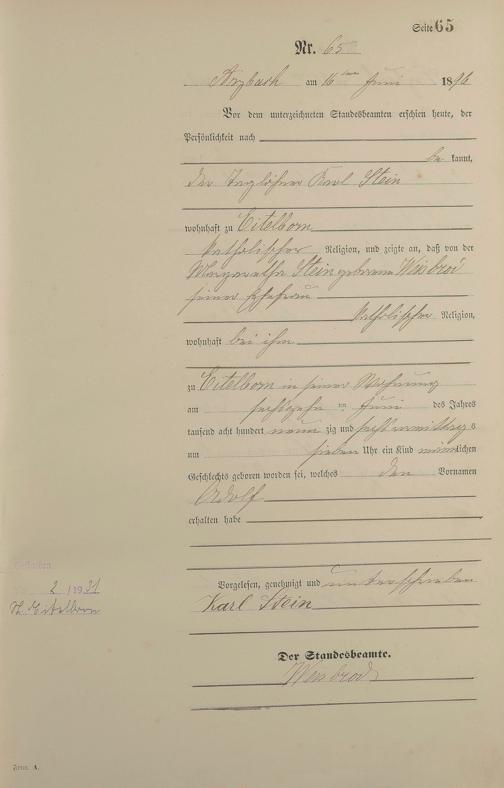 Seite 65
Nr. 65
Arzbach am 16ten Juni 1896
Vor dem unterzeichneten Standesbeamten erschien heute, der
Persönlichkeit nach
be kannt,
der Taglöhner Karl Stein
wohnhaft zu Eitelborn
katholischer Religion, und zeigte an, daß von der
Margaretha Stein geborene Weisbrod
seiner Ehefrau
katholischer Religion,
wohnhaft bei ihm
zu Eitelborn in seiner Wohnung
am sechzehn ten Juni des Jahres
tausend acht hundert neun zig und sechs vormittags
um sieben Uhr ein Kind männlichen
Geschlechts geboren worden sei, welches den Vornamen
Adolf
erhalten habe
Vorgelesen, genehmigt und unterschrieben
Karl Stein
Der Standesbeamte.
Weisbrod
Gestorben
2 / 1931
St. Eitelborn
Form. A.